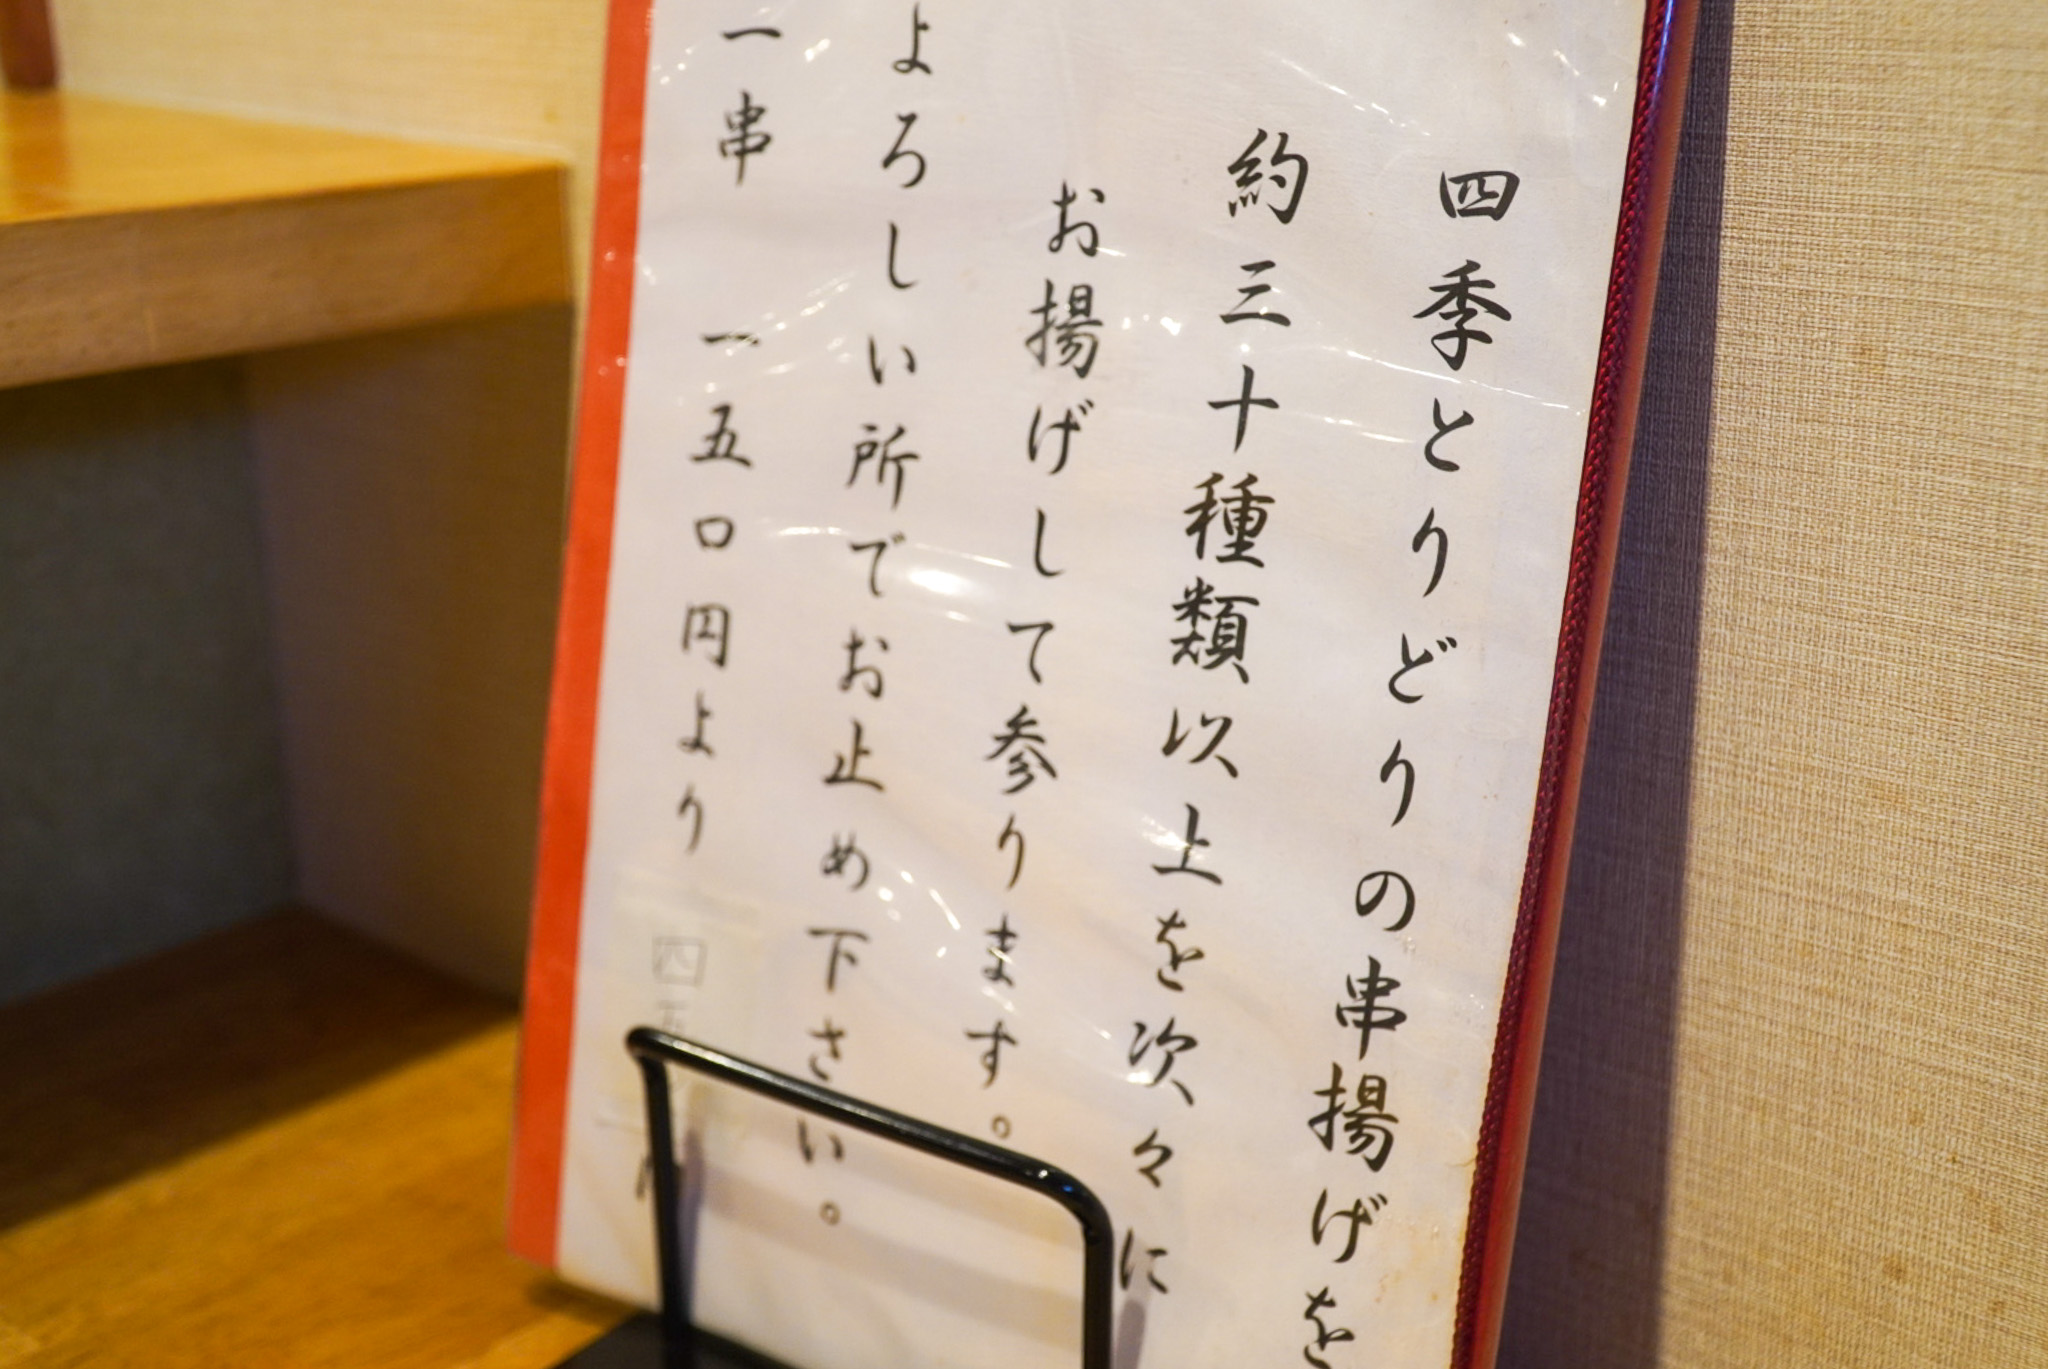 四季とりどりの串揚げを
約三十種類以上を次々に
お揚げして参ります。
よろしい所でお止め下さい。
一串 一五〇円より